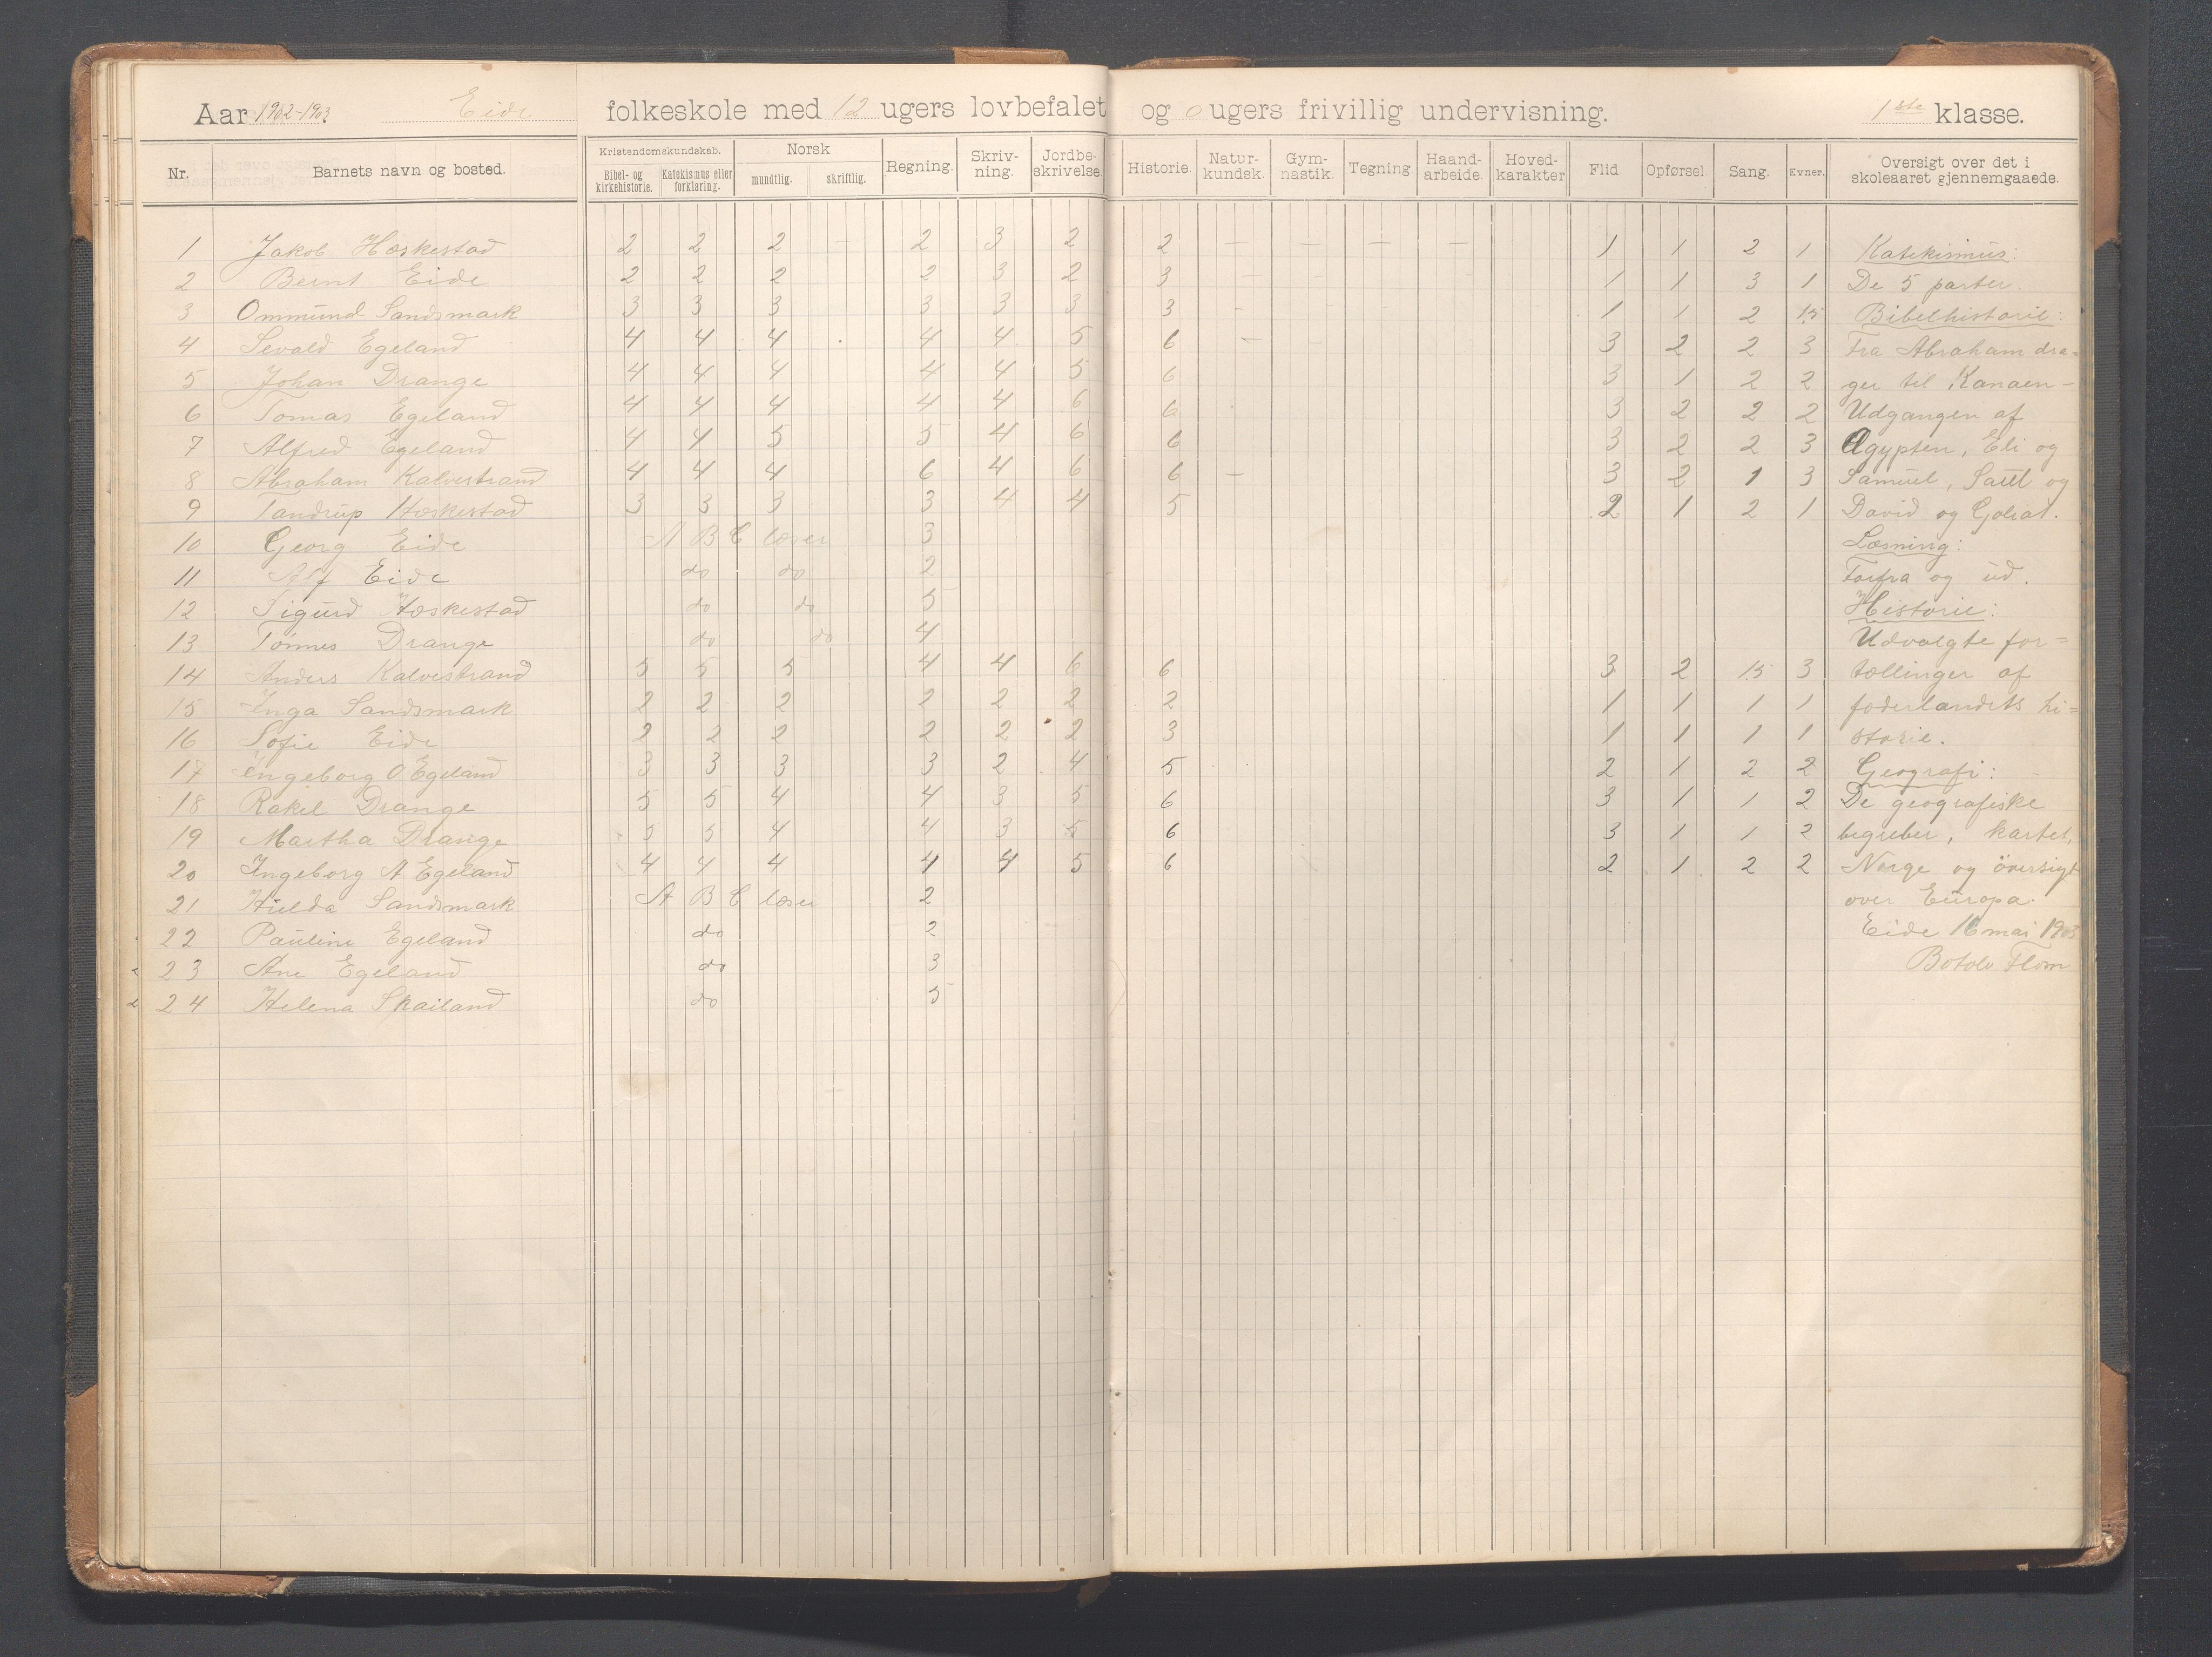 Aar 1902-1903 Eide folkeskole med 12 ugers lovbefalet og 0 ugers frivillig undervisning. 1ste klasse.
Nr. Barnets navn og bosted. Kristendomskundskab. Bibel- og kirkehistorie. Katekismus eller forklaring. Norsk mundtlig. skriftlig. Regning. Skriv-ning. Jordbe-skrivelse. Historie. Natur-kundsk. Gym-nastik. Tegning Haand-arbeide. Hoved-karakter Flid Opførsel. Sang. Evner. Oversigt over det i skoleaaret gjennemgaaede.
1 Jakob Hæskestad 2 2 2 - 2 3 2 2 - - - - 1 1 2 1 Katekismus:
2 Bernt Eide 2 2 2 2 3 2 3 - 1 1 3 1 De 5 parter.
3 Ommund Sandsmark 3 3 3 3 3 3 3 - 1 1 2 1.5 Bibelhistorie:
4 Sevald Egeland 4 4 4 4 4 5 6 - - 3 2 2 3 Fra Abraham dra=
5 Johan Drange 4 4 4 4 4 5 6 3 1 2 2 ger til Kanaen -
6 Tomas Egeland 4 4 4 4 4 6 6 3 2 2 2 Udgangen af
7 Alfred Egeland 4 4 5 5 4 6 6 3 2 2 3 Ægypten, Eli og
8 Abraham Kalvestrand 4 4 4 6 4 6 6 - 3 2 1 3 Samuel, Saul og
9 Tandrup Hæskestad 3 3 3 3 4 4 5 2 1 2 1 David og Goliat.
10 Georg Eide A B C læser 3 Læsning:
11 Alf Eide do do 2 Forfra og ud.
12 Sigurd Hæskestad do do 5 Historie:
13 Tønnes Drange do do 4 Udvalgte for=
14 Anders Kalvestrand 5 5 5 4 4 6 6 3 2 1.5 3 tællinger af
15 Inga Sandsmark 2 2 2 2 2 2 2 1 1 1 1 fæderlandets hi=
16 Sofie Eide 2 2 2 2 2 2 3 1 1 1 1 storie.
17 Ingeborg O Egeland 3 3 3 3 2 4 5 2 1 2 2 Geografi:
18 Rakel Drange 5 5 4 4 3 5 6 3 1 1 2 De geografiske
19 Martha Drange 5 5 4 4 3 5 6 3 1 1 2 begreber, kartet,
20 Ingeborg A Egeland 4 4 4 4 4 5 6 2 1 2 2 Norge og oversigt
21 Hulda Sandsmark A B C læser 2 over Europa.
22 Pauline Egeland do 2 Eide 16 mai 1903
23 Ane Egeland do 3 Botolv Flom
24 Helena Skailand do 5